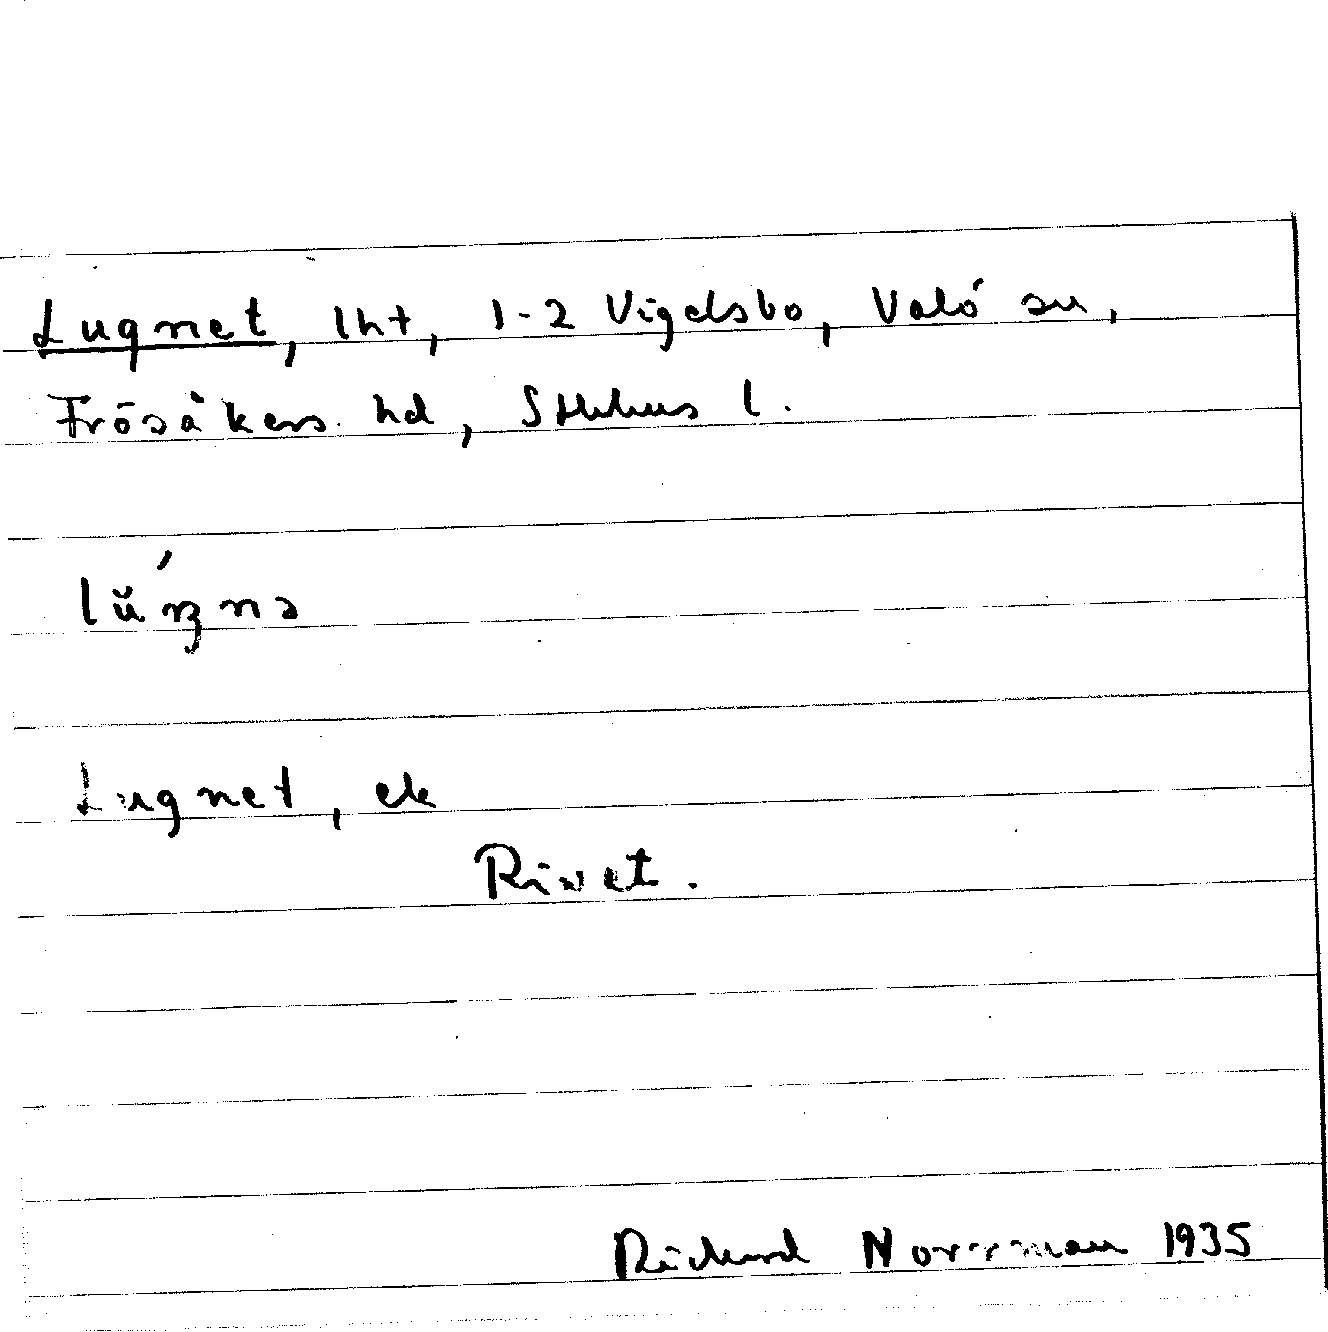 Lugnet, lht, 1-2 Vigelsbo, Valö sn,
Frösåkers hd, Sthlms l.
Lugnet, ek
Rivet.
Rickard Norrman 1935